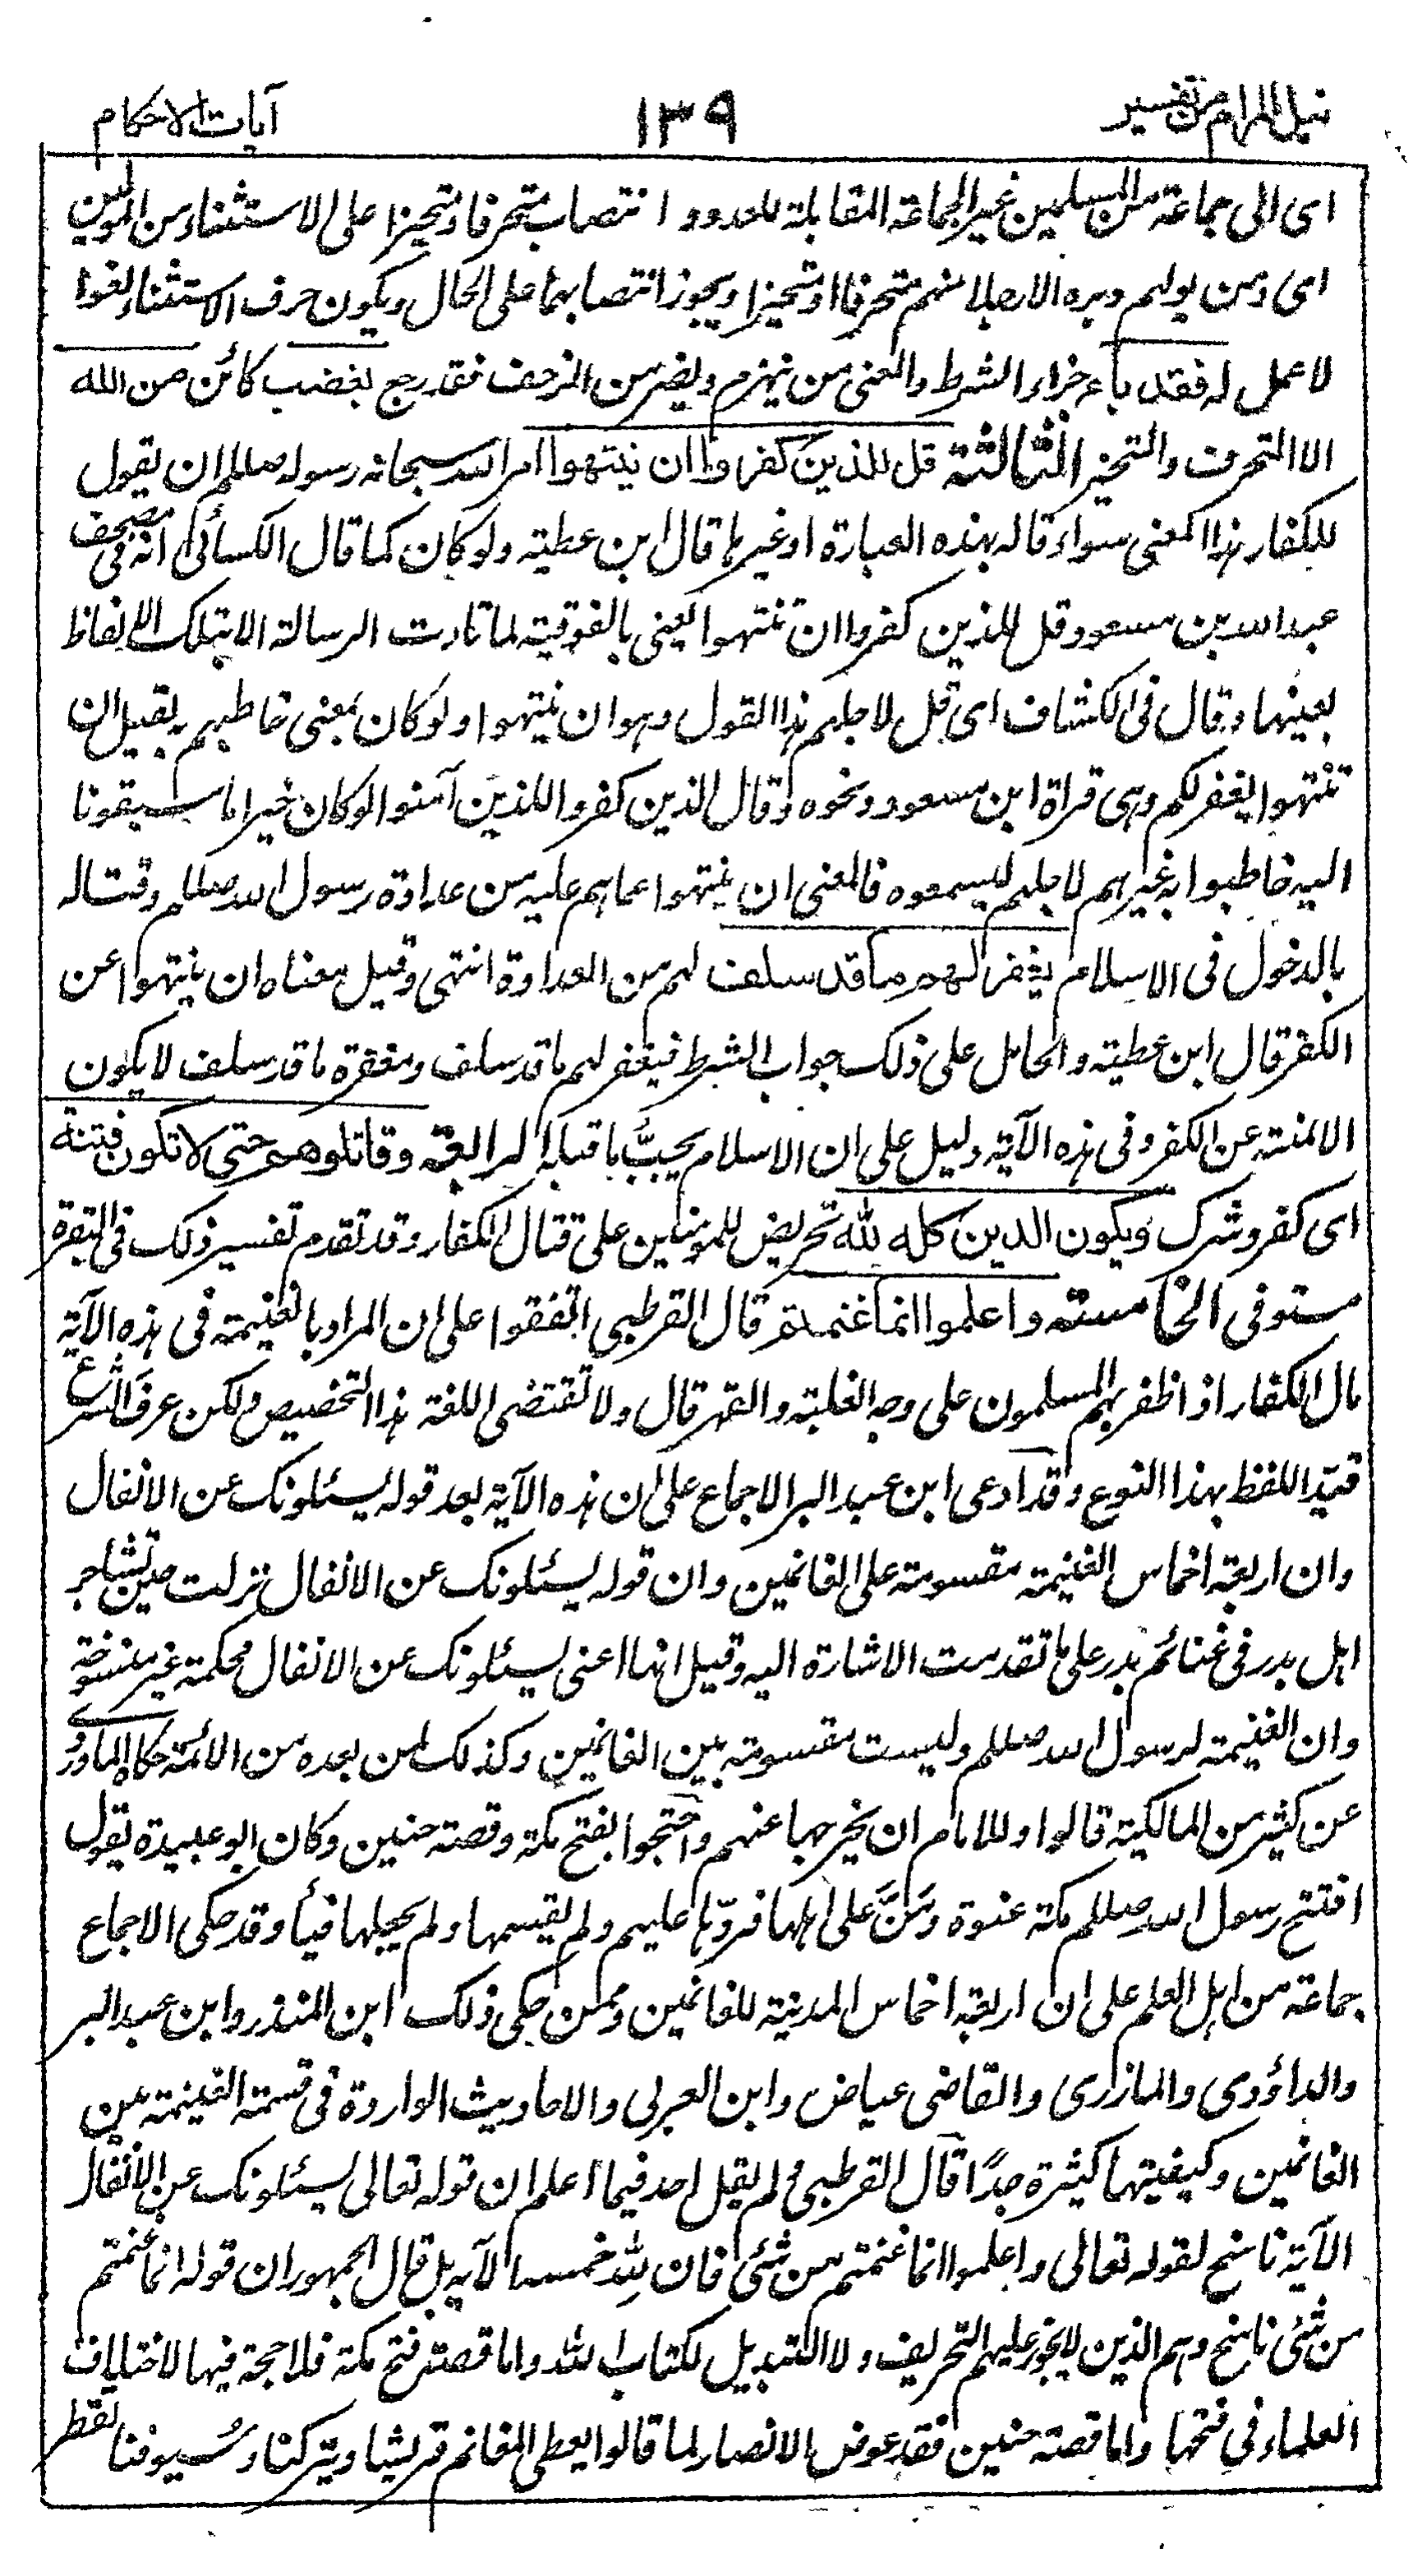 نيل المرام من تفسير ١٣٩ آيات الاحكام
اى الى جماعة من المسلمين غير الجماعة المقابلة للعدو و انتصاب متحرفا ومتحيزا على الاستثناء من المولين
اى ومن يولهم دبره الا رجلا منهم متحرفا او متحيزا ويجوز انتصابهما على الحال ويكون حرف الاستثناء لغوا
لا عمل له فقد باء جزاء الشرط والمعنى من ينهزم ويفر من الزحف فقد رجع بغضب كائن من الله
الا التحرف والتحيز الثالثة قل للذين كفروا ان ينتهوا امر الله سبحانه رسوله صللم ان يقول
للكفار هذا المعنى سواء قاله بهذه العبارة او غيرها قال ابن عطية ولو كان كما قال الكسائى انه فى مصحف
عبد الله بن مسعود قل للذين كفروا ان تنتهوا يعنى بالفوقية لما تادت الرسالة الا بتلك الالفاظ
بعينها وقال فى الكشاف اى قل لاجلهم هذا القول وهو ان ينتهوا ولو كان بمعنى خاطبهم به لقيل ان
تنتهوا يغفر لكم وهى قراة ابن مسعود ونحوه وقال الذين كفروا للذين آمنوا لو كان خيرا ما سبقونا
اليه خاطبوا به غيرهم لاجلهم ليسمعوه فالمعنى ان ينتهوا عما هم عليه من عداوة رسول الله صللم وقتاله
بالدخول فى الاسلام يغفر لهم ما قد سلف لهم من العداوة انتهى وقيل معناه ان ينتهوا عن
الكفر قال ابن عطية والحامل على ذلك جواب الشرط فيغفر لهم ما قد سلف ومغفرة ما قد سلف لا يكون
الا لمنته عن الكفر وفى هذه الآية دليل على ان الاسلام يجبّ ما قبله الرابعة وقاتلوهم حتى لا تكون فتنة
اى كفر وشرك ويكون الدين كله لله تحريض للمومنين على قتال الكفار وقد تقدم تفسير ذلك فى البقرة
مستوفى الخامسة واعلموا انما غنمتم قال القرطبى اتفقوا على ان المراد بالغنيمة فى هذه الآية
مال الكفار اذا ظفر بهم المسلمون على وجه الغلبة والقهر قال ولا تقتضى اللغة هذا التخصيص ولكن عرف الشرع
قيّد اللفظ بهذا النوع وقد ادعى ابن عبد البر الاجماع على ان هذه الآية بعد قوله يسئلونك عن الانفال
وان اربعة اخماس الغنيمة مقسومة على الغانمين وان قوله يسئلونك عن الانفال نزلت حين تشاجر
اهل بدر فى غنائم بدر على ما تقدمت الاشارة اليه وقيل انها اعنى يسئلونك عن الانفال محكمة غير منسوخة
وان الغنيمة لرسول الله صللم وليست مقسومة بين الغانمين وكذلك لمن بعده من الائمة حكاه الماوردى
عن كثير من المالكية قالوا وللامام ان يخرجها عنهم واحتجوا بفتح مكة وقصة حنين وكان ابو عبيدة يقول
افتتح رسول الله صللم مكة عنوة ومَنَّ على اهلها فردّها عليهم ولم يقسمها ولم يجعلها فيأ وقد حكى الاجماع
جماعة من اهل العلم على ان اربعة اخماس المدنية للغانمين وممن حكى ذلك ابن المنذر وابن عبد البر
والداؤدى والمازرى والقاضى عياض وابن العربى والاحاديث الواردة فى قسمة الغنيمة بين
الغانمين وكيفيتها كثيرة جدًا قال القرطبى ولم يقل احد فيما اعلم ان قوله تعالى يسئلونك عن الانفال
الآية ناسخ لقوله تعالى واعلموا انما غنمتم من شئى فان لله خمسه الآية بل قال الجمهور ان قوله انما غنمتم
من شئى ناسخ وهم الذين لا يجوز عليهم التحريف ولا التبديل لكتاب الله واما قصة فتح مكة فلا حجة فيها لاختلاف
العلماء فى فتحها واما قصة حنين فقد عوض الانصار لما قالوا يعطى الغانم قريشا ويتركنا وسُيوفنا تقطر